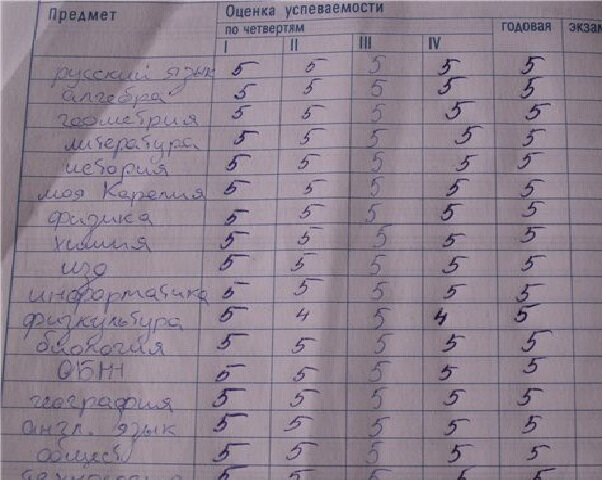 Предмет Оценка успеваемости
по четвертям годовая экзам
I II III IV
русский язык 5 5 5 5 5
алгебра 5 5 5 5 5
геометрия 5 5 5 5 5
литература 5 5 5 5 5
история 5 5 5 5 5
моя Карелия 5 5 5 5 5
физика 5 5 5 5 5
химия 5 5 5 5 5
изо 5 5 5 5 5
информатика 5 5 5 5 5
физкультура 5 4 5 4 5
биология 5 5 5 5 5
ОБЖ 5 5 5 5 5
география 5 5 5 5 5
англ. язык 5 5 5 5 5
общест 5 5 5 5 5
5 5 5 5 5